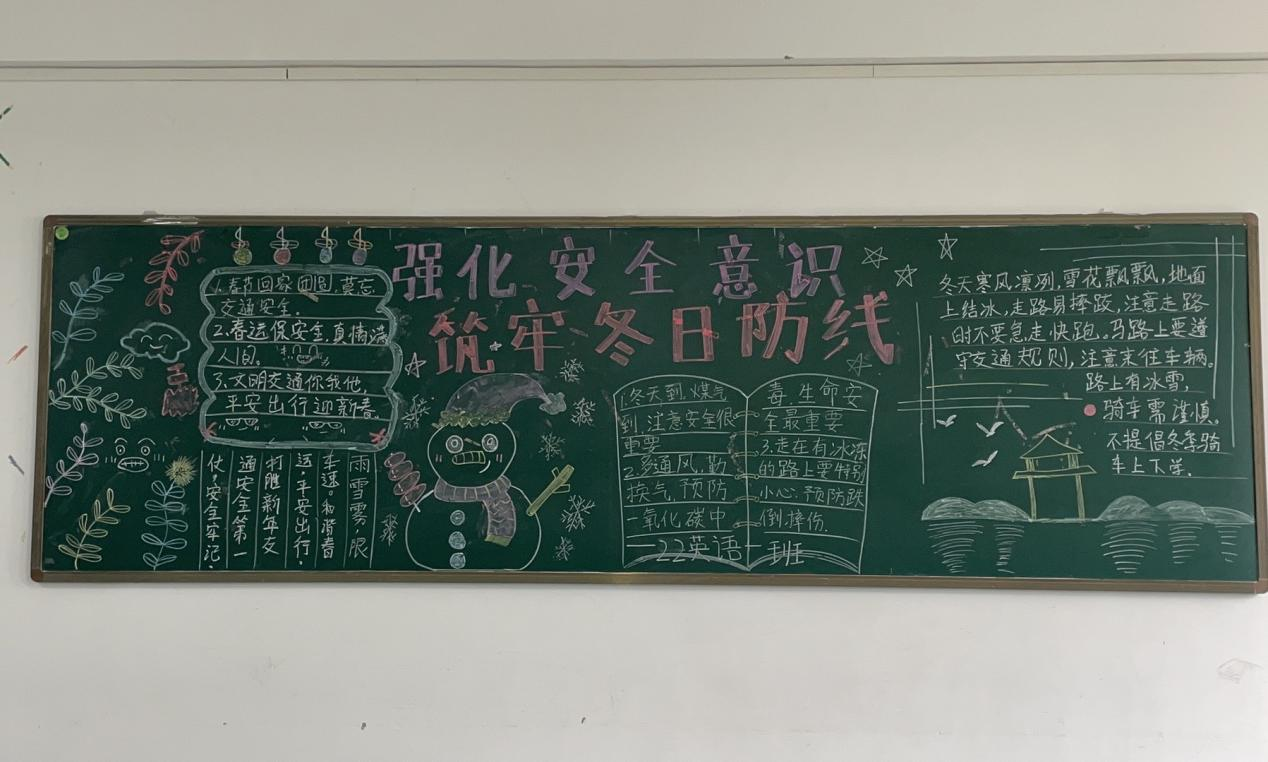 强化安全意识
筑牢冬日防线
1.春节回家团圆,莫忘
交通安全.
2.春运保安全,真情满
人间.
3.文明交通你我他,
平安出行迎新春.
雨雪雾,限
车速。和谐春
运,平安出行.
打胜新年交
通安全第一
仗,安全牢记.
1.冬天到,煤气
到,注意安全很
重要
2.多通风,勤
换气,预防
一氧化碳中
毒,生命安
全最重要
3.走在有冰冻
的路上要特别
小心:预防跌
倒,摔伤.
—22英语一班
冬天寒风凛冽,雪花飘飘,地面
上结冰,走路易摔跤,注意走路
时不要急走快跑。马路上要遵
守交通规则,注意来往车辆。
路上有冰雪,
骑车需谨慎,
不提倡冬季骑
车上下学.